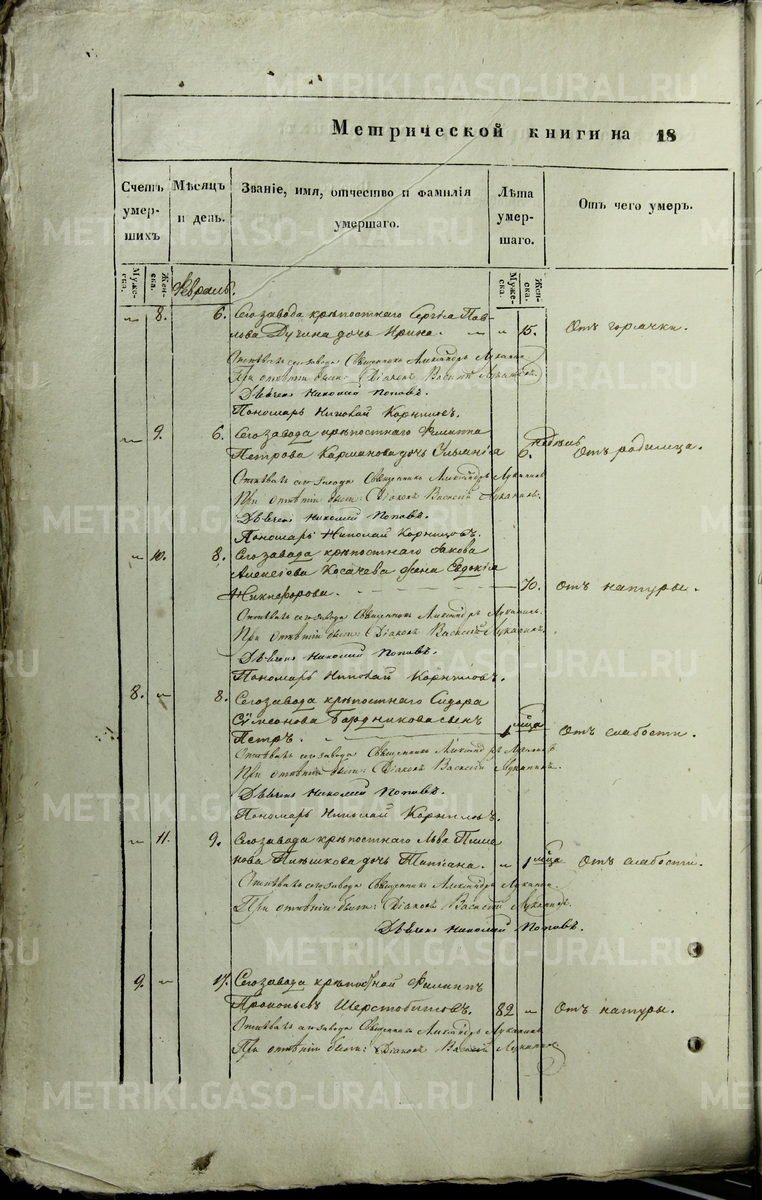 Метрической книги на 18
Счетъ умершихъ
Мужеска.
Женска.
Мѣсяцъ и день.
Званіе, имя, отчество и фамилія умершаго.
Лѣта умершаго.
Мужеска.
Женска.
Отъ чего умеръ.
Февраль.
„ 8. 6. Сего завода крѣпостнаго Сергѣя Пав-
лова дочь Ирина. „ 15. Отъ горячки.
Отпѣвалъ сего завода Священникъ Александръ Луканинъ
При отпѣтіи были: Діаконъ Василій Луканинъ
Дьячекъ Николай Поповъ.
Пономарь Николай Корниловъ.
„ 9. 6. Сего завода крѣпостнаго Филиппа
Петрова Карманова дочь 6. недѣль Отъ родимца.
Отпѣвалъ сего завода Священникъ Александръ Луканинъ
При отпѣтіи были: Діаконъ Василій Луканинъ.
Дьячекъ Николай Поповъ.
Пономарь Николай Корниловъ.
„ 10. 8. Сего завода крѣпостнаго Якова
Алексѣева Косачева жена Евдокія
Никифорова. 70. Отъ натуры.
Отпѣвалъ сего завода Священникъ Александръ Луканинъ.
При отпѣтіи были: Діаконъ Василій Луканинъ.
Дьячекъ Николай Поповъ.
Пономарь Николай Корниловъ.
8. „ 8. Сего завода крѣпостнаго Сидора
Сѵмеонова сынъ
Петръ. 1 мѣсца Отъ слабости.
Отпѣвалъ сего завода Священникъ Александръ Луканинъ
При отпѣтіи были: Діаконъ Василій Луканинъ.
Дьячекъ Николай Поповъ.
Пономарь Николай Корниловъ.
„ 11. 9. Сего завода крѣпостнаго Льва Пима-
нова Плѣшкова дочь Татіана. „ 1 мѣсца Отъ слабости.
Отпѣвалъ сего завода Священникъ Александръ Луканинъ
При отпѣтіи были: Діаконъ Василій Луканинъ.
Дьячекъ Николай Поповъ.
9. „ 17. Сего завода крѣпостной Филиппъ
Прокопьевъ Шерстобитовъ. 82 „ Отъ натуры.
Отпѣвалъ сего завода Священникъ Александръ Луканинъ
При отпѣтіи были: Діаконъ Василій Луканинъ
METRIKI.GASO-URAL.RU